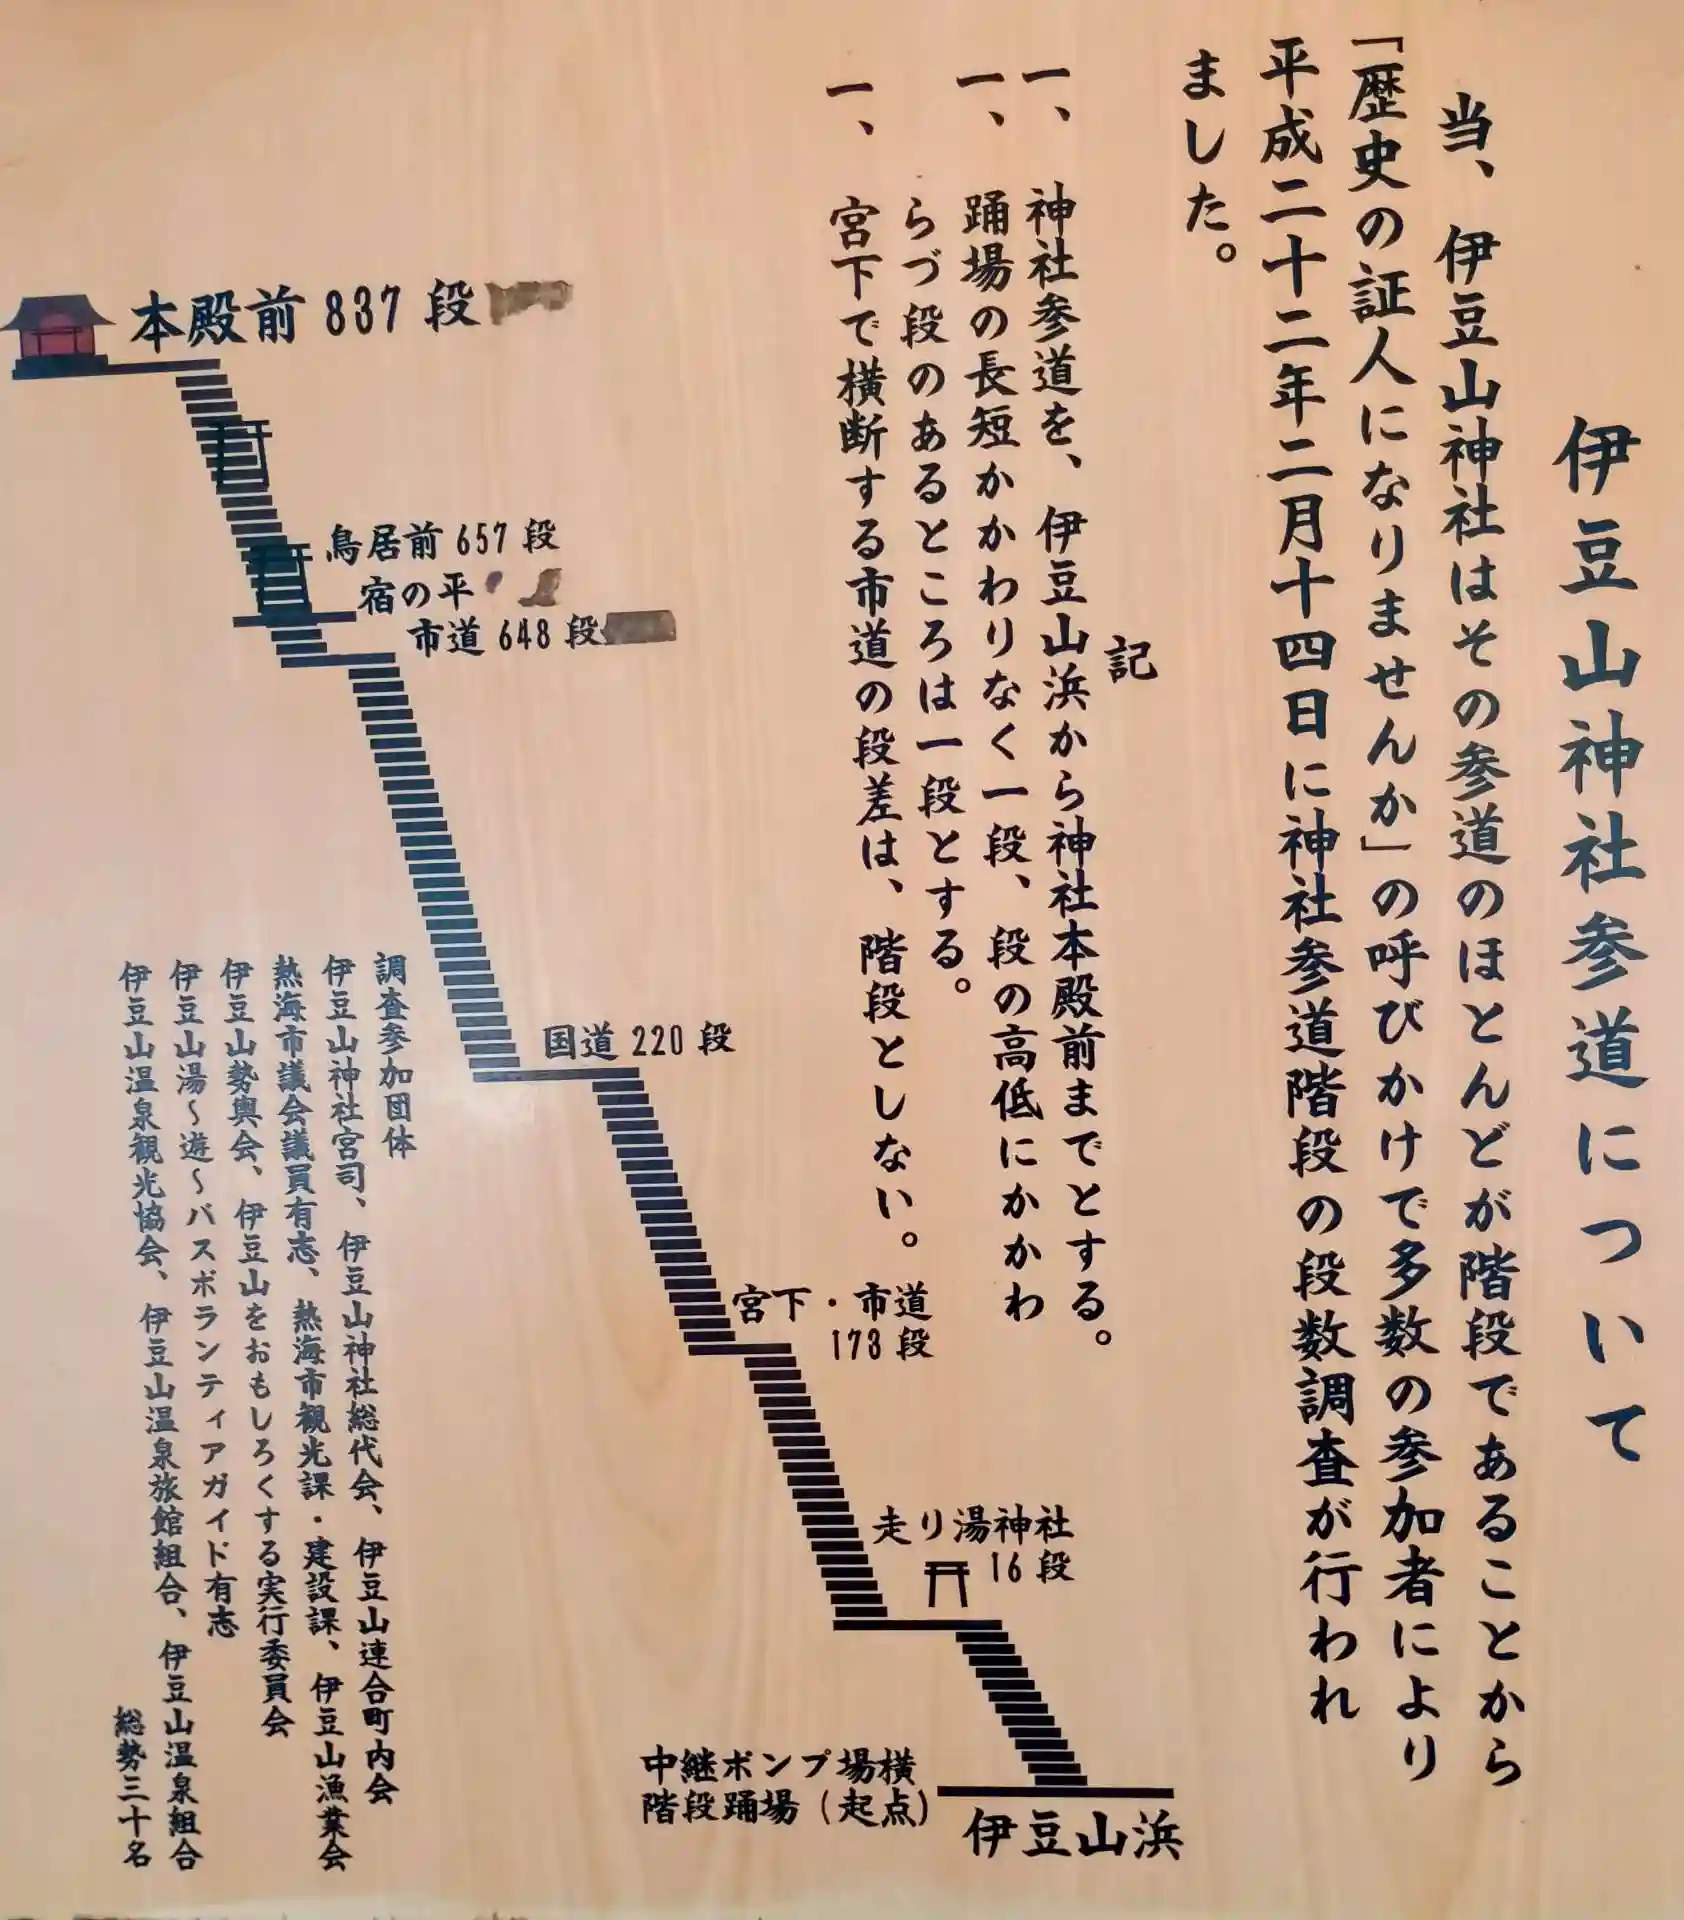 伊豆山神社参道について
当、伊豆山神社はその参道のほとんどが階段であることから
「歴史の証人になりませんか」の呼びかけで多数の参加者により
平成二十二年二月十四日に神社参道階段の段数調査が行われ
ました。
記
一、神社参道を、伊豆山浜から神社本殿前までとする。
一、踊場の長短かかわりなく一段、段の高低にかかわ
らづ段のあるところは一段とする。
一、宮下で横断する市道の段差は、階段としない。
本殿前 837 段
鳥居前 657 段
宿の平
市道 648 段
国道 220 段
宮下・市道
173 段
走り湯神社
16 段
中継ポンプ場横
階段踊場（起点）
伊豆山浜
調査参加団体
伊豆山神社宮司、伊豆山神社総代会、伊豆山連合町内会
熱海市議会議員有志、熱海市観光課・建設課、伊豆山漁業会
伊豆山勢輿会、伊豆山をおもしろくする実行委員会
伊豆山湯〜遊〜バスボランティアガイド有志
伊豆山温泉観光協会、伊豆山温泉旅館組合、伊豆山温泉組合
総勢三十名